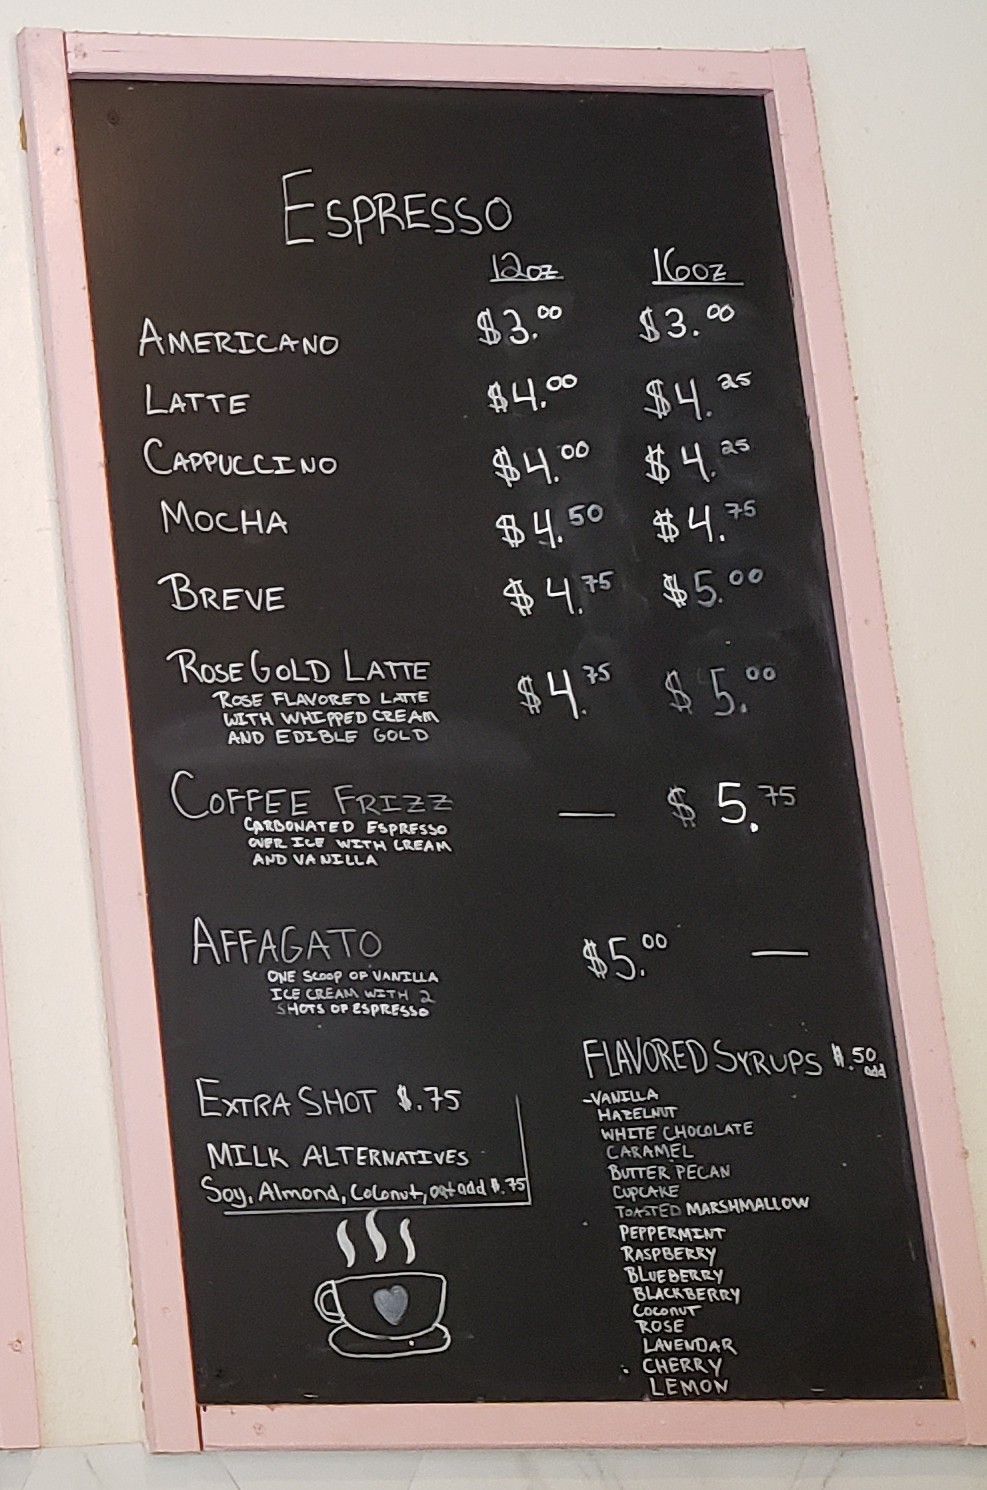 ESPRESSO
12oz 16oz
AMERICANO $3.00 $3.00
LATTE $4.00 $4.25
CAPPUCCINO $4.00 $4.25
MOCHA $4.50 $4.75
BREVE $4.75 $5.00
ROSE GOLD LATTE $4.75 $5.00
ROSE FLAVORED LATTE
WITH WHIPPED CREAM
AND EDIBLE GOLD
COFFEE FRIZZ — $5.75
CARBONATED ESPRESSO
OVER ICE WITH CREAM
AND VANILLA
AFFAGATO $5.00 —
ONE SCOOP OF VANILLA
ICE CREAM WITH 2
SHOTS OF ESPRESSO
EXTRA SHOT $.75
MILK ALTERNATIVES
Soy, Almond, Coconut, oat add $.75
FLAVORED SYRUPS $.50 add
-VANILLA
HAZELNUT
WHITE CHOCOLATE
CARAMEL
BUTTER PECAN
CUPCAKE
TOASTED MARSHMALLOW
PEPPERMINT
RASPBERRY
BLUEBERRY
BLACKBERRY
COCONUT
ROSE
LAVENDAR
CHERRY
LEMON